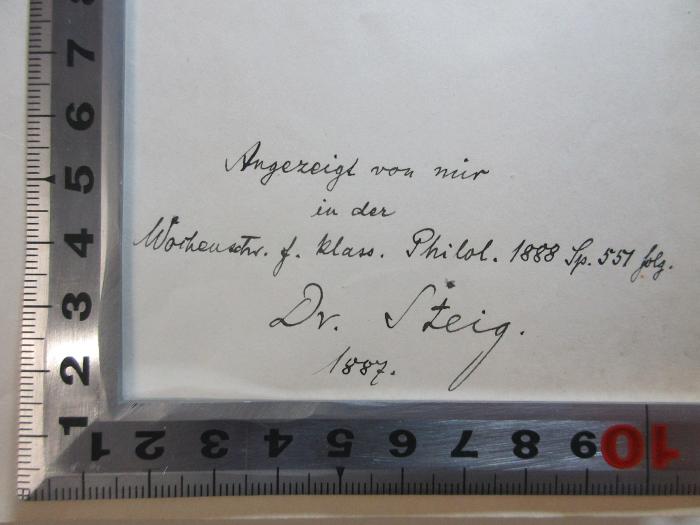 Angezeigt von mir
in der
Wochenschr. f. klass. Philol. 1888 Sp. 551 folg.
Dr. Steig.
1887.
7
6
5
4
3
2
1
1 2 3 4 5 6 7 8 9 10 1